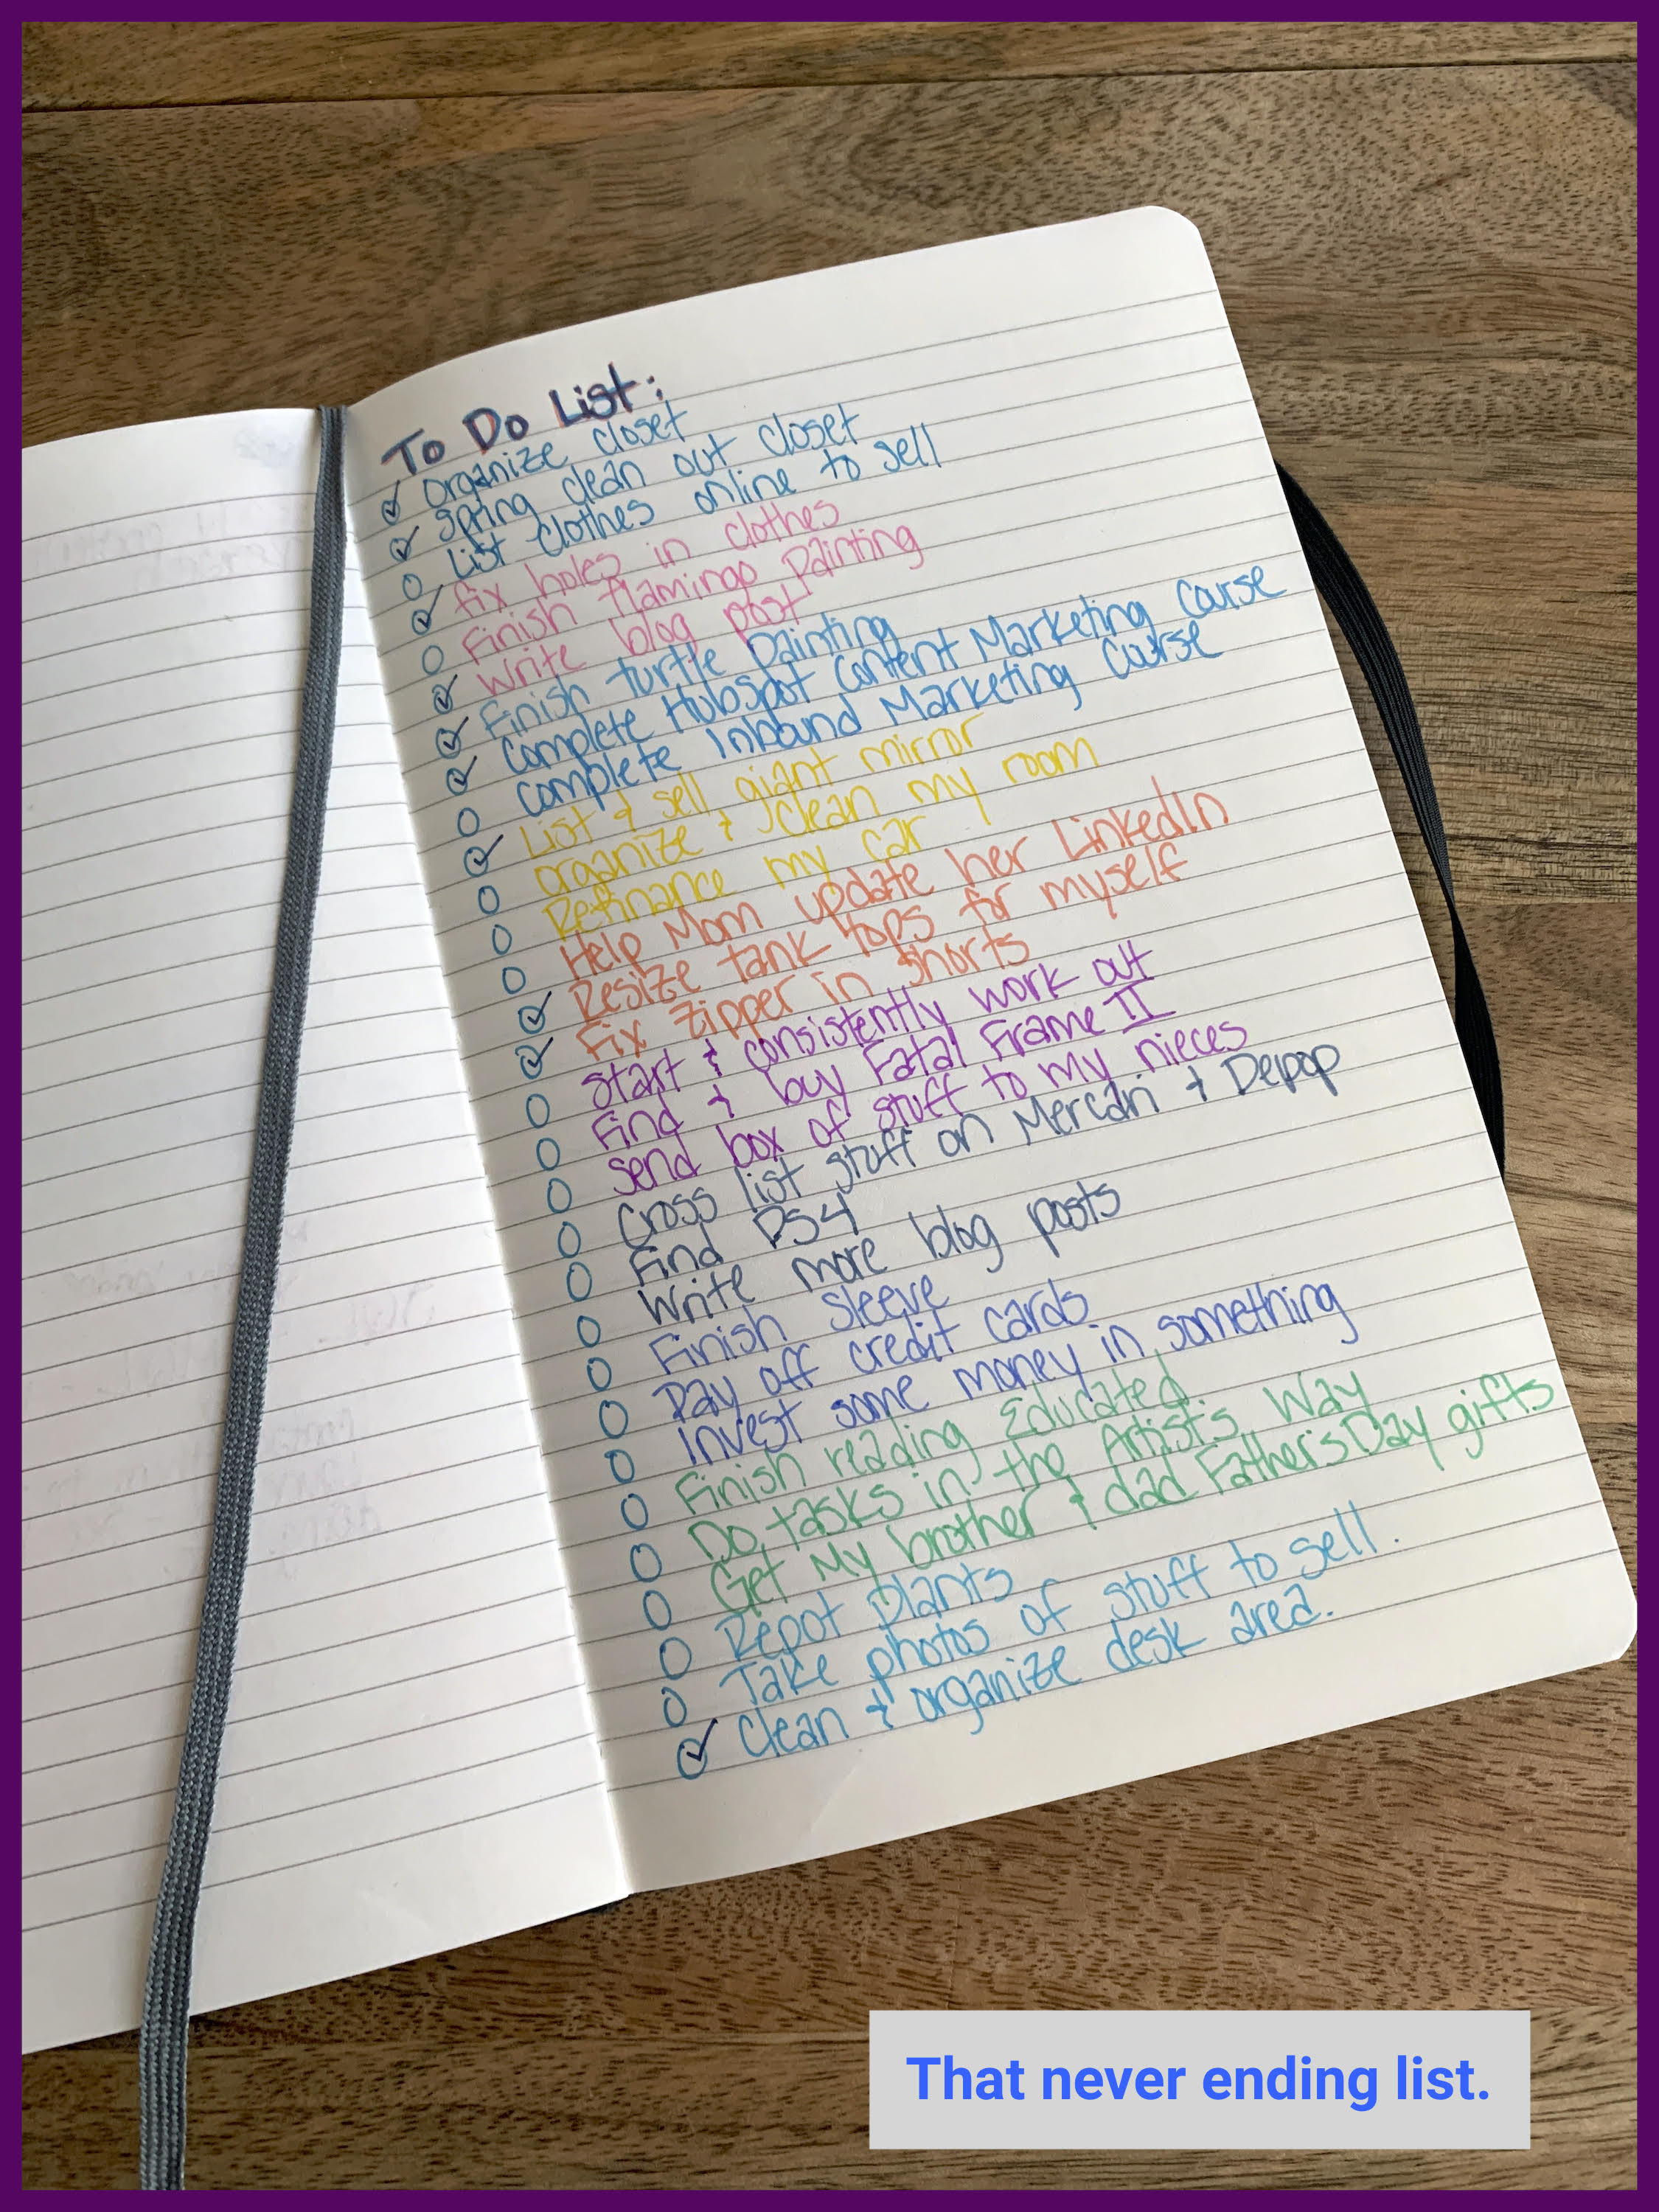 To Do List:
organize closet
spring clean out closet
List clothes online to sell
fix holes in clothes
Finish flamingo painting
Write blog post
Finish turtle painting
Complete Hubspot Content Marketing Course
complete Inbound Marketing Course
List & sell giant mirror
organize & clean my room
Refinance my car
Help Mom update her LinkedIn
Resize tank tops for myself
Fix zipper in shorts
Start & consistently work out
Find & buy Fatal Frame II
send box of stuff to my nieces
Cross list stuff on Mercari & Depop
Find PS4
Write more blog posts
Finish sleeve
Pay off credit cards
Invest some money in something
Finish reading Educated
Do tasks in the Artist's Way
Get My brother & dad Father's Day gifts
Repot plants
Take photos of stuff to sell.
Clean & organize desk area.
That never ending list.